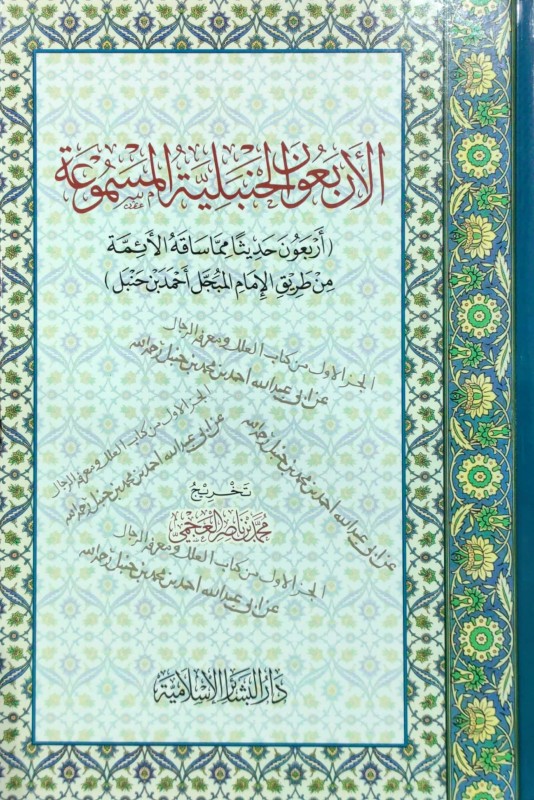 الأربعون الحنبلية المسموعة
(أَرْبَعُونَ حَدِيثًا مِمَّا سَاقَهُ الأَئِمَّة
مِنْ طَرِيقِ الإِمَامِ المُبَجَّلِ أَحْمَدَ بْنِ حَنْبَل)
الجزء الاول من كتاب العلل ومعرفة الرجال
عن ابي عبد الله احمد بن محمد بن حنبل رحمه الله
الجزء الاول من كتاب العلل ومعرفة الرجال
عن ابي عبد الله احمد بن محمد بن حنبل رحمه الله
عن ابي عبد الله احمد بن محمد بن حنبل رحمه الله
تَخْرِيجُ
محمد بن ناصر العجمي
الجزء الاول من كتاب العلل ومعرفة الرجال
عن ابي عبد الله احمد بن محمد بن حنبل رحمه الله
دار البشائر الإسلامية